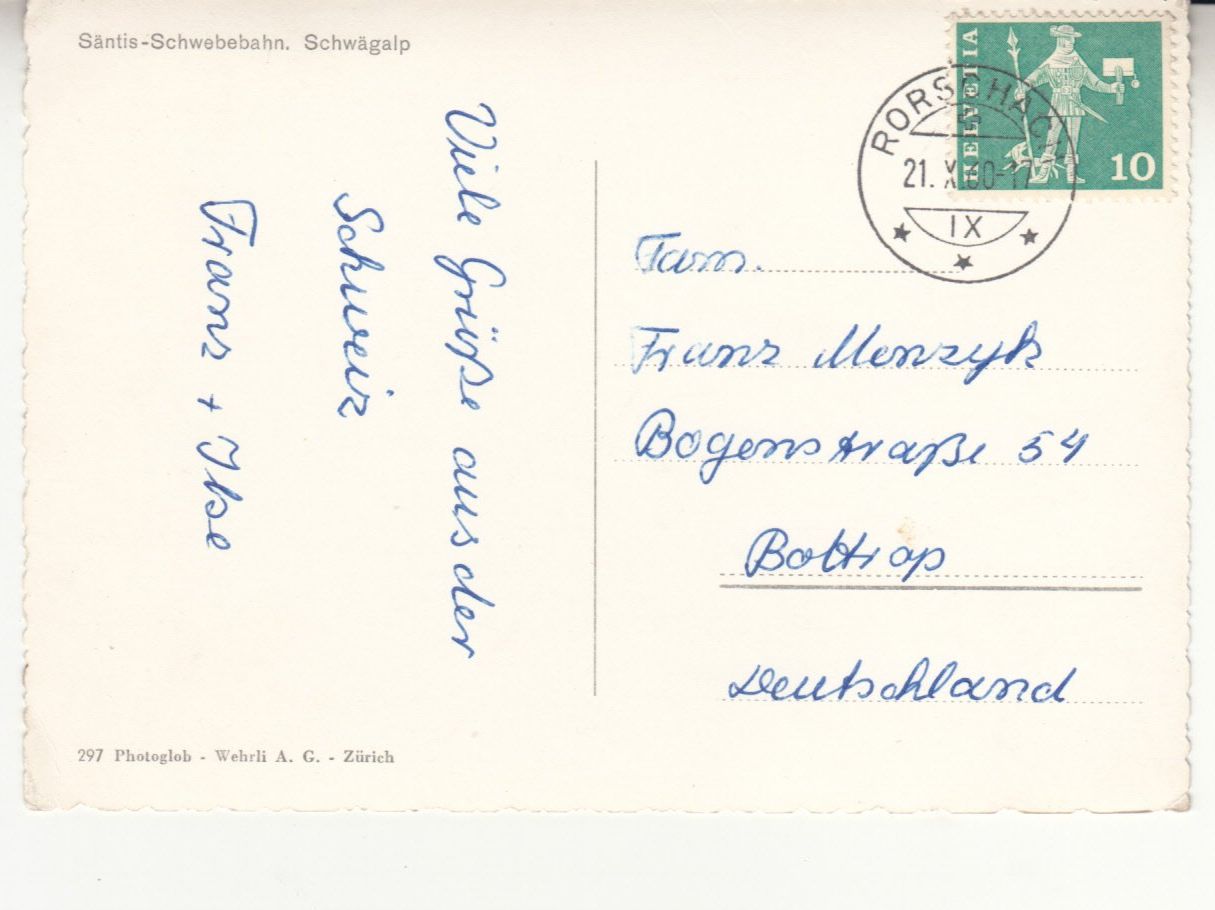 Säntis-Schwebebahn. Schwägalp
Viele Grüße aus der
Schweiz
Franz + Ilse
297 Photoglob - Wehrli A. G. - Zürich
HELVETIA
10
RORSCHACH
21. X 60-17
IX
Fam.
Franz Menzyk
Bogenstraße 54
Bottrop
Deutschland